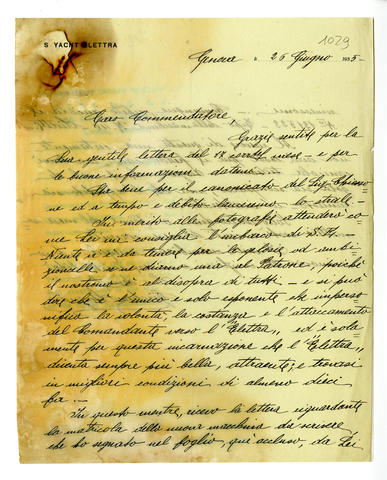 1029
S. YACHT ELETTRA
Genova 26 Giugno 1935-
Caro Commendatore,
Grazie sentite per la
Sua gentile lettera del 18 corr. mese - e per
le buone informazioni datemi.
Sta bene per il canonicato del Sig.
ne ed a tempo e debito lanceremo lo strale.
In merito alle fotografie attenderò co
me Lei mi consiglia l'imbarco di S. A. -
Niente vi è da temere per le gelosie od am-
bizioncelle se ne diamo una al Padrone, poichè
il nostromo è al disopra di tutti - e si può
dire che è l'unico e solo esponente che imperso-
nifica la volontà, la costanza e l'attaccamento
del Comandante verso l'Elettra,, ed è sola-
mente per questa incarnazione che l'Elettra,,
diventa sempre più bella, attraente; e trovasi
in migliori condizioni di almeno dieci
fa -
In questo mentre, ricevo la lettera riguardante
la matricola della nuova macchina da scrivere
che ho segnato nel foglio, qui accluso, da Lei